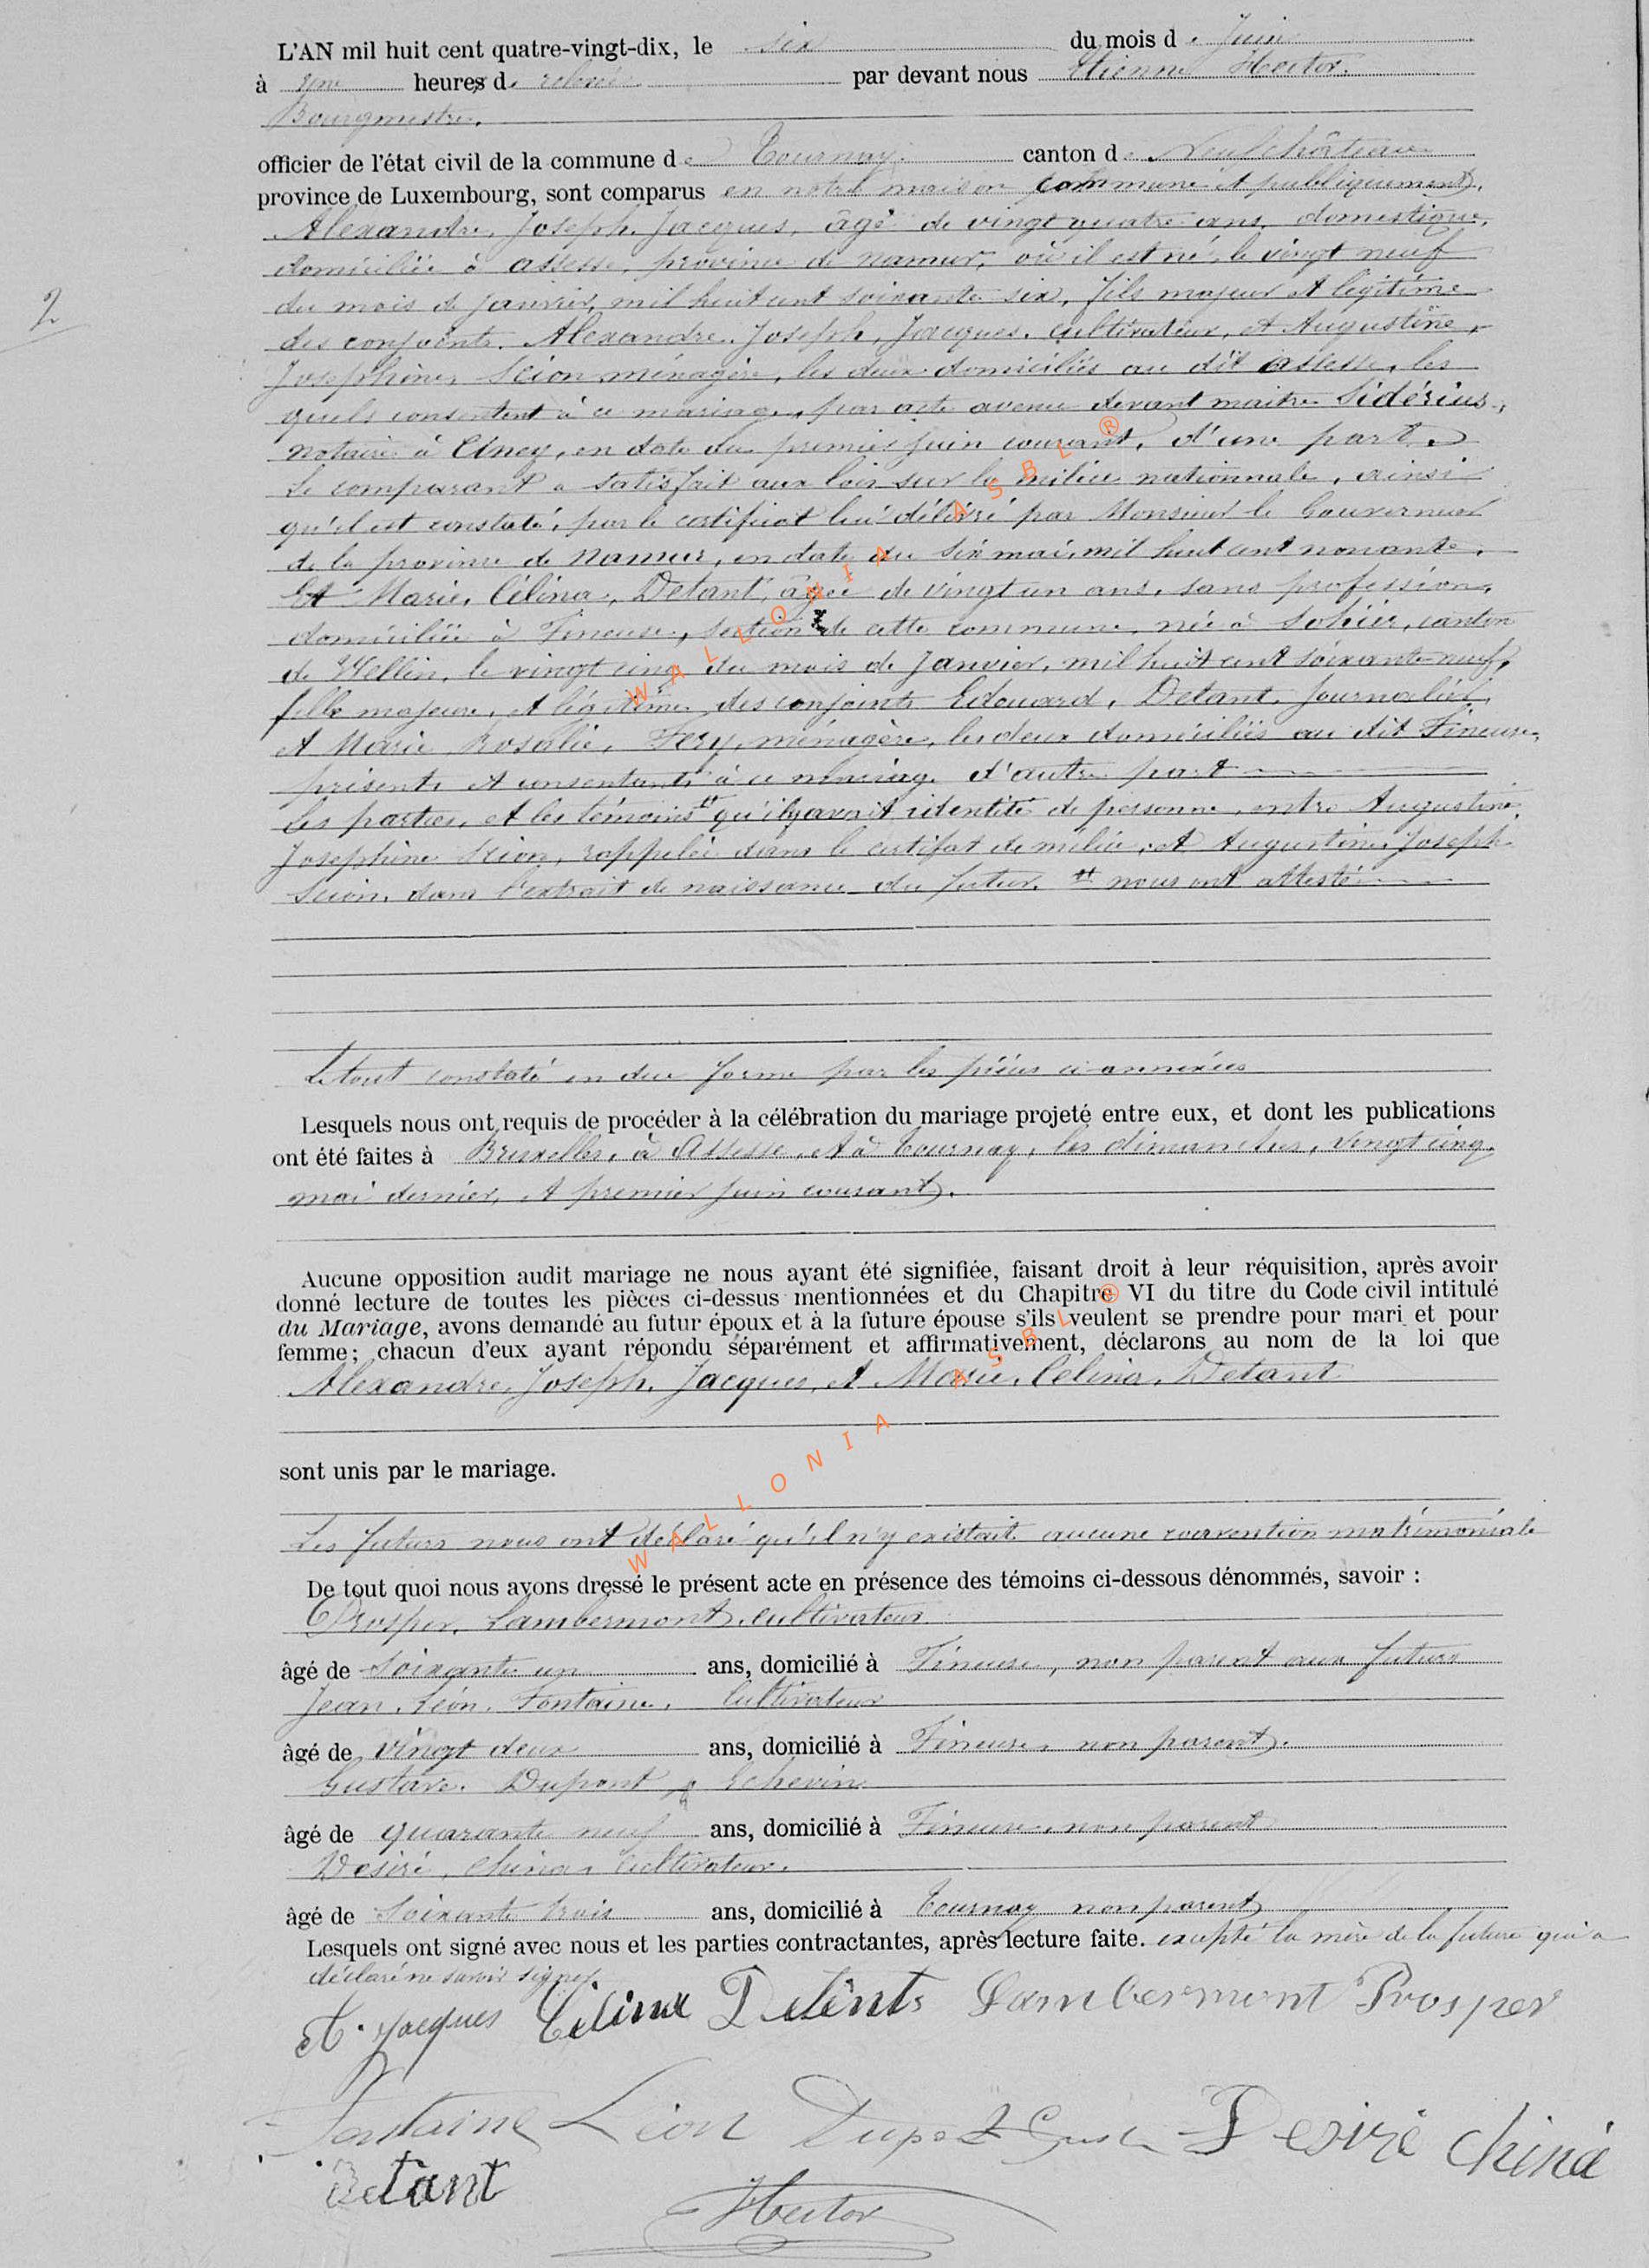 L'AN mil huit cent quatre-vingt-dix, le six du mois de Juin
à une heures de relevée par devant nous Etienne Hector.
Bourgmestre.
officier de l'état civil de la commune de Tournay. canton de Neufchâteau
province de Luxembourg, sont comparus en notre maison commune et publiquement,
Alexandre, Joseph, Jacques, âgé de vingt quatre ans, domestique,
domicilié à Assesse, province de Namur, où il est né, le vingt neuf
du mois de janvier, mil huit cent soixante six, fils majeur et légitime
des conjoints Alexandre, Joseph, Jacques, cultivateur, et Augustine,
Josephine, Scion ménagère, les deux domiciliés au dit Assesse, les
quels consentent à ce mariage, par acte avenu devant maitre Sidérius,
notaire à Ciney, en date du premier juin courant, d'une part,
Le comparant a satisfait aux lois sur la milice nationnale, ainsi
qu'il est constaté, par le certificat lui délivré par Monsieur le Gouverneur
de la province de Namur, en date du six mai, mil huit cent nonante.
Et Marie, Célina, Detant, âgée de vingt un ans, sans profession,
domiciliée à Fineuse, section de cette commune, née à Sohier, canton
de Wellin, le vingt cinq du mois de Janvier, mil huit cent soixante neuf,
fille majeure, et légitime des conjoints Edouard, Detant, Journalier,
et Marie Rosalie, Fery, ménagère, les deux domiciliés au dit Fineuse,
présents et consentants à ce mariage d'autre part
les parties, et les témoins # qu'il y avait identité de personne, entre Augustine
Josephine Scion, rappelée dans le certifat de milice, et Augustine, Joseph
Scion, dans l'extrait de naissance du futur. # nous ont attesté
Le tout constaté en due forme par les pièces ci-annexées
Lesquels nous ont requis de procéder à la célébration du mariage projeté entre eux, et dont les publications
ont été faites à Bruxelles, à Assesse, et à Tournay, les dimanches, vingt cinq
mai dernier, et premier juin courant.
Aucune opposition audit mariage ne nous ayant été signifiée, faisant droit à leur réquisition, après avoir
donné lecture de toutes les pièces ci-dessus mentionnées et du Chapitre VI du titre du Code civil intitulé
du Mariage, avons demandé au futur époux et à la future épouse s'ils veulent se prendre pour mari et pour
femme; chacun d'eux ayant répondu séparément et affirmativement, déclarons au nom de la loi que
Alexandre, Joseph, Jacques, et Marie, Celina, Detant
sont unis par le mariage.
Les futurs nous ont déclaré qu'il n'y existait aucune convention matrimoniale
De tout quoi nous avons dressé le présent acte en présence des témoins ci-dessous dénommés, savoir :
Prosper, Lambermont, cultivateur
âgé de Soixante un ans, domicilié à Fineuse, non parent aux futurs
Jean, Léon, Fontaine, Cultivateur
âgé de vingt deux ans, domicilié à Fineuse, non parent.
Gustave. Dupont, Echevin
âgé de quarante neuf ans, domicilié à Fineuse, non parent
Desiré, China, Cultivateur.
âgé de Soixante trois ans, domicilié à Tournay non parent
Lesquels ont signé avec nous et les parties contractantes, après lecture faite. excepté la mère de la future qui a
déclaré ne savoir signer.
A. Jacques Célina Detents Lambermont Prosper
Fontaine Léon Dupont Desiré China
Detant Hector
2
WALLONIA ASBL ®
WALLONIA ASBL ®